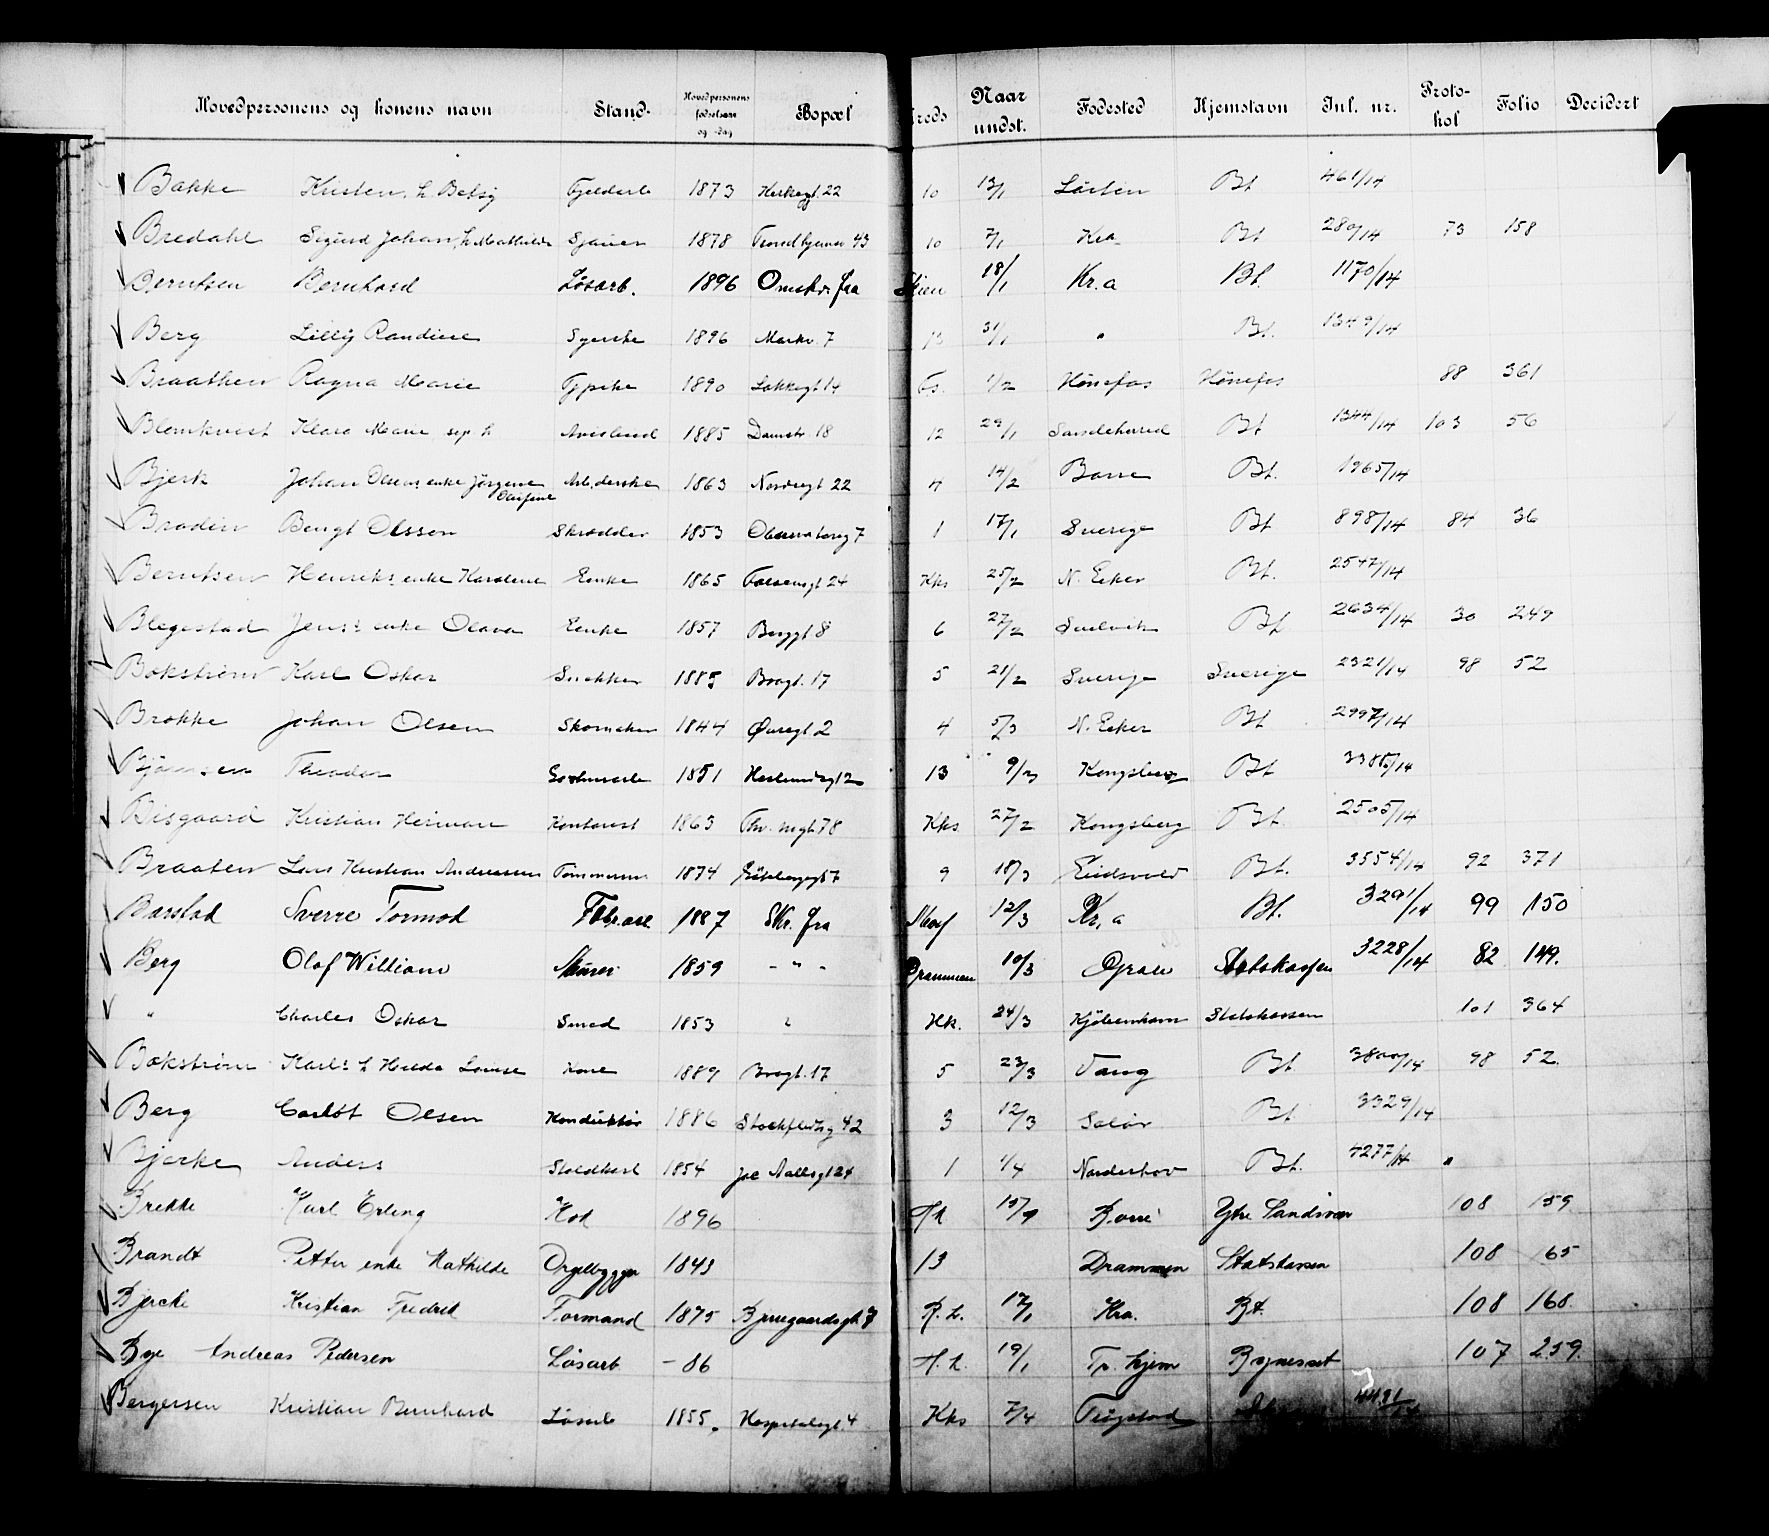 Hovedpersonens og konens navn Stand. Hovedpersonens fødselsaar og -dag Bopæl Kreds Naar undst. Fødested Hjemstavn Inl. nr. Protokol Folio Decidert
Bakke Kristen, h. Betsy 1873 Herkegt 22 10 13/1 Løiten Bt 461/14
Bredahl Sigurd Johan, h. Mathilde Sjauer 1878 Trondhjemsv 43 10 7/1 Kra. Bt 280/14 73 158
Berntsen Bernhard Løsarb. 1896 Omskr. fra Skien 18/1 Kr.a Bt. 1170/14
Berg Lilly Randine Syerske 1896 Markv. 7 13 31/1 " Bt. 1349/14
Braathen Ragna Marie 1890 Lakkegt 14 Fs. 1/2 Hönefos Hönefos 88 361
Blomkvist Klara Marie sep. h. Avisbud 1885 Damstr. 18 12 29/1 Bt 1344/14 103 56
Bjerk Johan Olsens enke Jörgine Olufine Arb.derske 1863 Nordregt 22 4 14/2 Borre Bt. 1965/14
Brodin Bengt Olsson Skrædder 1853 Observatoriegt 7 1 17/1 Sverige Bt 898/14 84 36
Berntsen Henriks enke Karoline Enke 1865 Falsensgt 24 Kks 25/2 N. Eker Bt. 2547/14
Blegestad Jens's enke Olava Enke 1857 Berggt 8 6 27/2 Svelvik Bt 2634/14 30 249
Bokström Karl Oskar Snekker 1885 Bragt. 17 5 21/2 Sverige Sverige 2321/14 98 52
Brokke Johan Olsen Skomaker 1844 Øvregt 2 4 5/3 N. Eker Bt 2997/14
Björnsen Theodor 1851 13 9/3 Kongsberg Bt 3385/14
Bisgaard Kristian Herman Kontorist 1863 Thv. megt 78 Kks 27/2 Kongsberg Bt. 2505/14
Braaten Lars Kristian Andreassen Tömmerm 1874 Göteborggt 7 9 18/3 Eidsvold Bt. 3554/14 92 371
Barstad Sverre Tormod Fabr.arb 1887 Skr. fra 12/3 Kr.a Bt. 3291/14 99 150
Berg Olaf William Murer 1859 - " - Drammen 10/3 Statskassen 3228/14 82 149.
" Charles Oskar Smed 1853 " Hk. 24/3 Kjöbenhavn Statskassen 101 364
Bokström Karl's h Hulda Lovise Kone 1889 Bragt. 17 5 23/3 Vang Bt 3800/14 98 52.
Berg Carlot Olsen Konduktör 1886 Stockfletsg 42 3 12/3 Solör Bt 3329/14
Bjerke Anders Staldkarl 1854 Jac Aallsgt 24 1 1/4 Norderhov Bt. 4277/14 "
Brekke Karl Erling Kok 1896 Hk 15/9 Borre Ytre Sandsver 108 159
Brandt Petter enke Mathilde Orgelbygger 1843 13 Drammen Statskassen 108 165
Bjercke Kristian Fredrik Formand 1875 Bjerregaardsgt 7 R. h. 17/1 Kra. Bt. 108 168.
Bye Andreas Pedersen Løsarb. - 86 H. k. 19/1 Tr. hjem Bynesset 107 259.
Bergersen Kristian Bernhard Løsarb 1855. Hospitalsgt. 4 Kks 7/4 Trögstad 4431/14